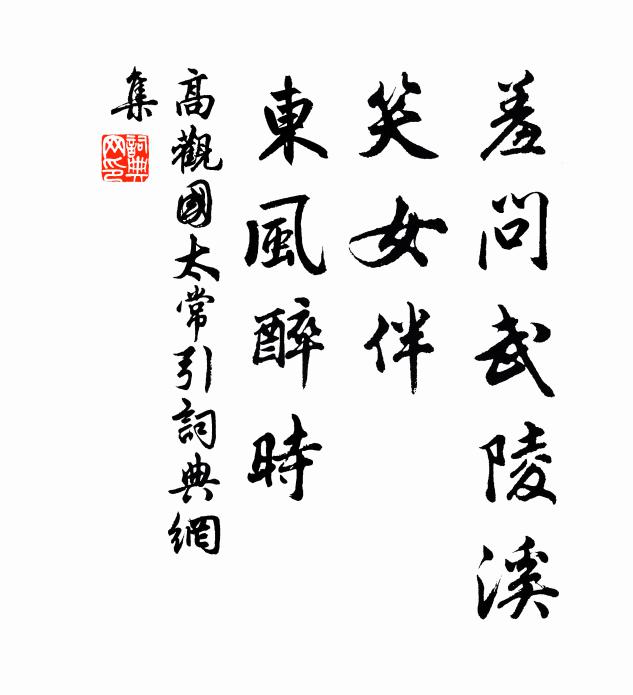 羞問武陵溪
笑女伴
東風醉時
高觀國太常引詞典網
集
詞典
网印